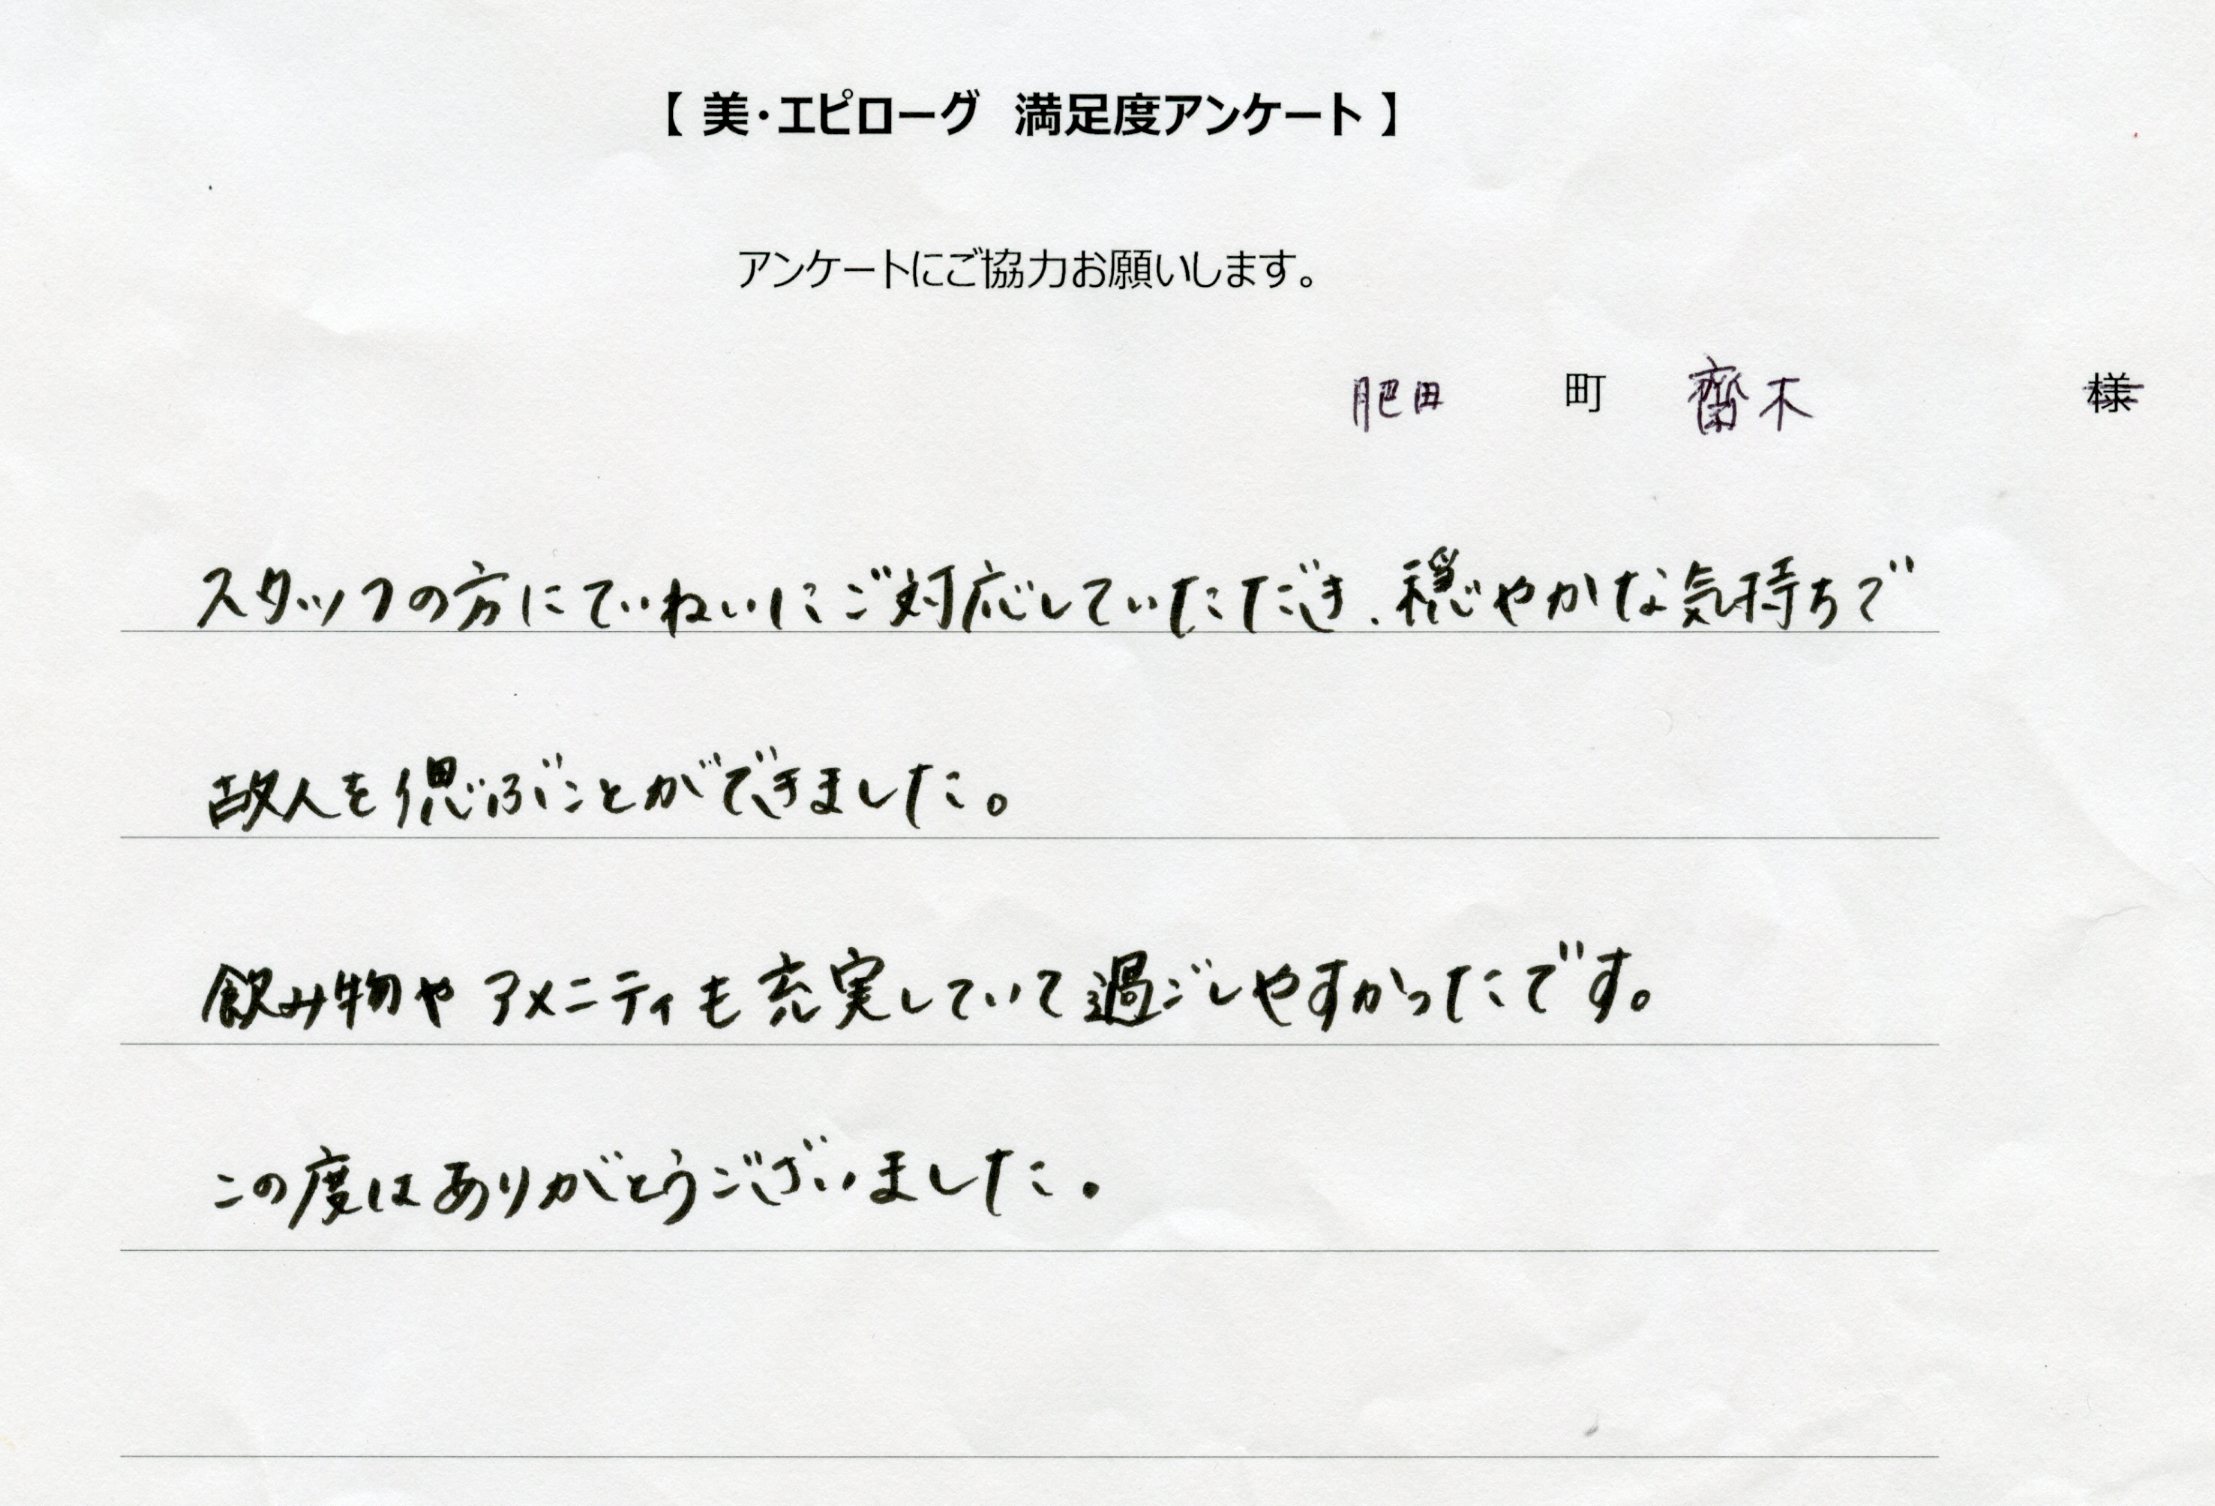 【 美・エピローグ 満足度アンケート 】
アンケートにご協力お願いします。
肥田 町 齋木 様
スタッフの方にていねいにご対応していただき、穏やかな気持ちで
故人を偲ぶことができました。
飲み物やアメニティも充実していて過ごしやすかったです。
この度はありがとうございました。